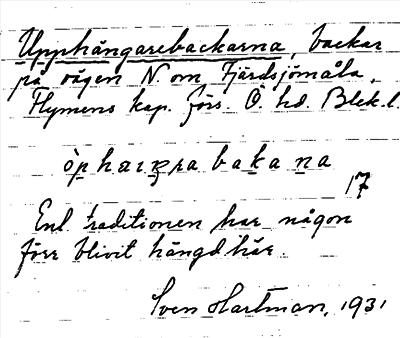 Upphängarebackarna, backar
på vägen N. om Fjärdsjömåla,
Flymens kap. förs. Ö. hd. Blek. l.
17
Enl traditionen har någon
förr blivit hängd här.
Sven Hartman, 1931